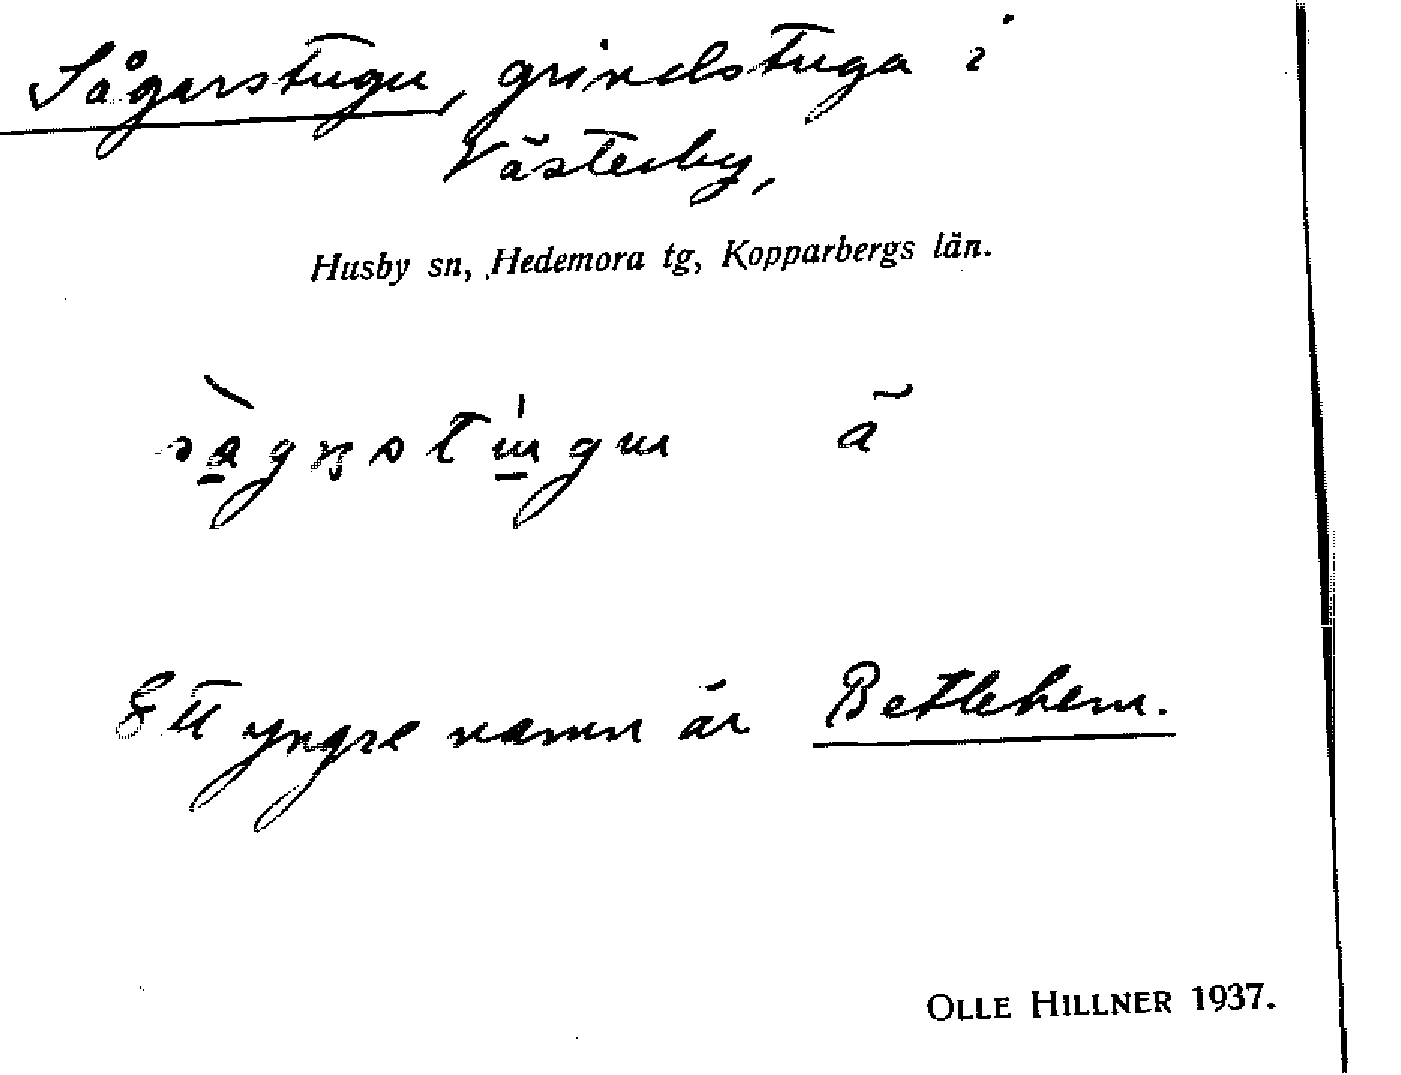 Sågarstugu, grindstuga i
Västerby,
Husby sn, Hedemora tg, Kopparbergs län.
Ett yngre namn är Betlehem.
OLLE HILLNER 1937.